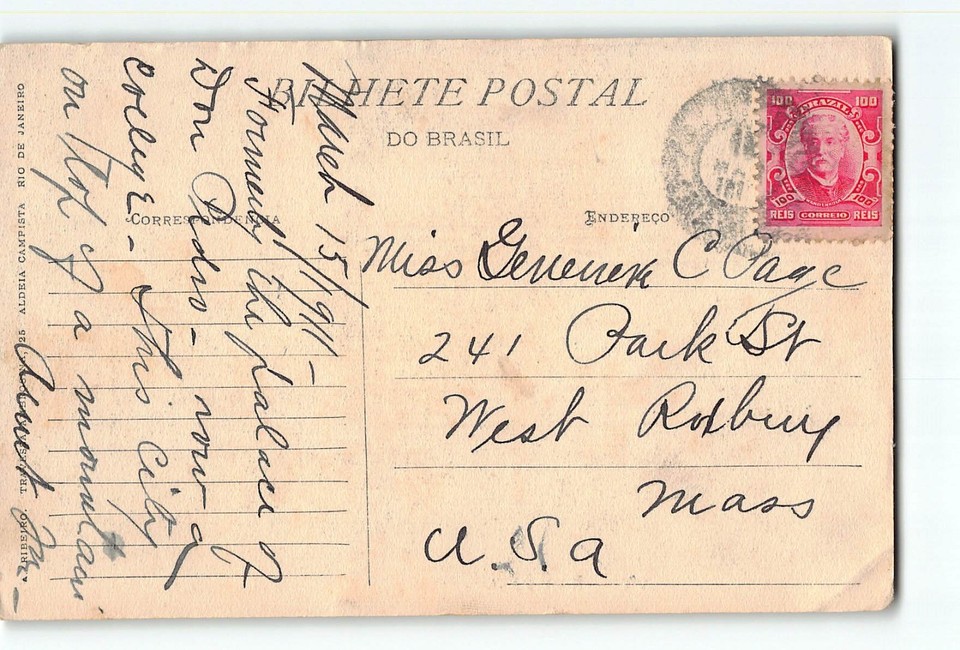 BILHETE POSTAL
DO BRASIL
CORRESPONDENCIA
ENDEREÇO
100 BRAZIL 100
100 100
REIS CORREIO REIS
March 15/1911 -
Formerly the palace of
Don Pedro - now a
college - This city
on top of a mountain
Aunt
Miss Genevieve C Page
241 Park St
West Roxbury
Mass
U.S.A
A. RIBEIRO, 25 ALDEIA CAMPISTA RIO DE JANEIRO